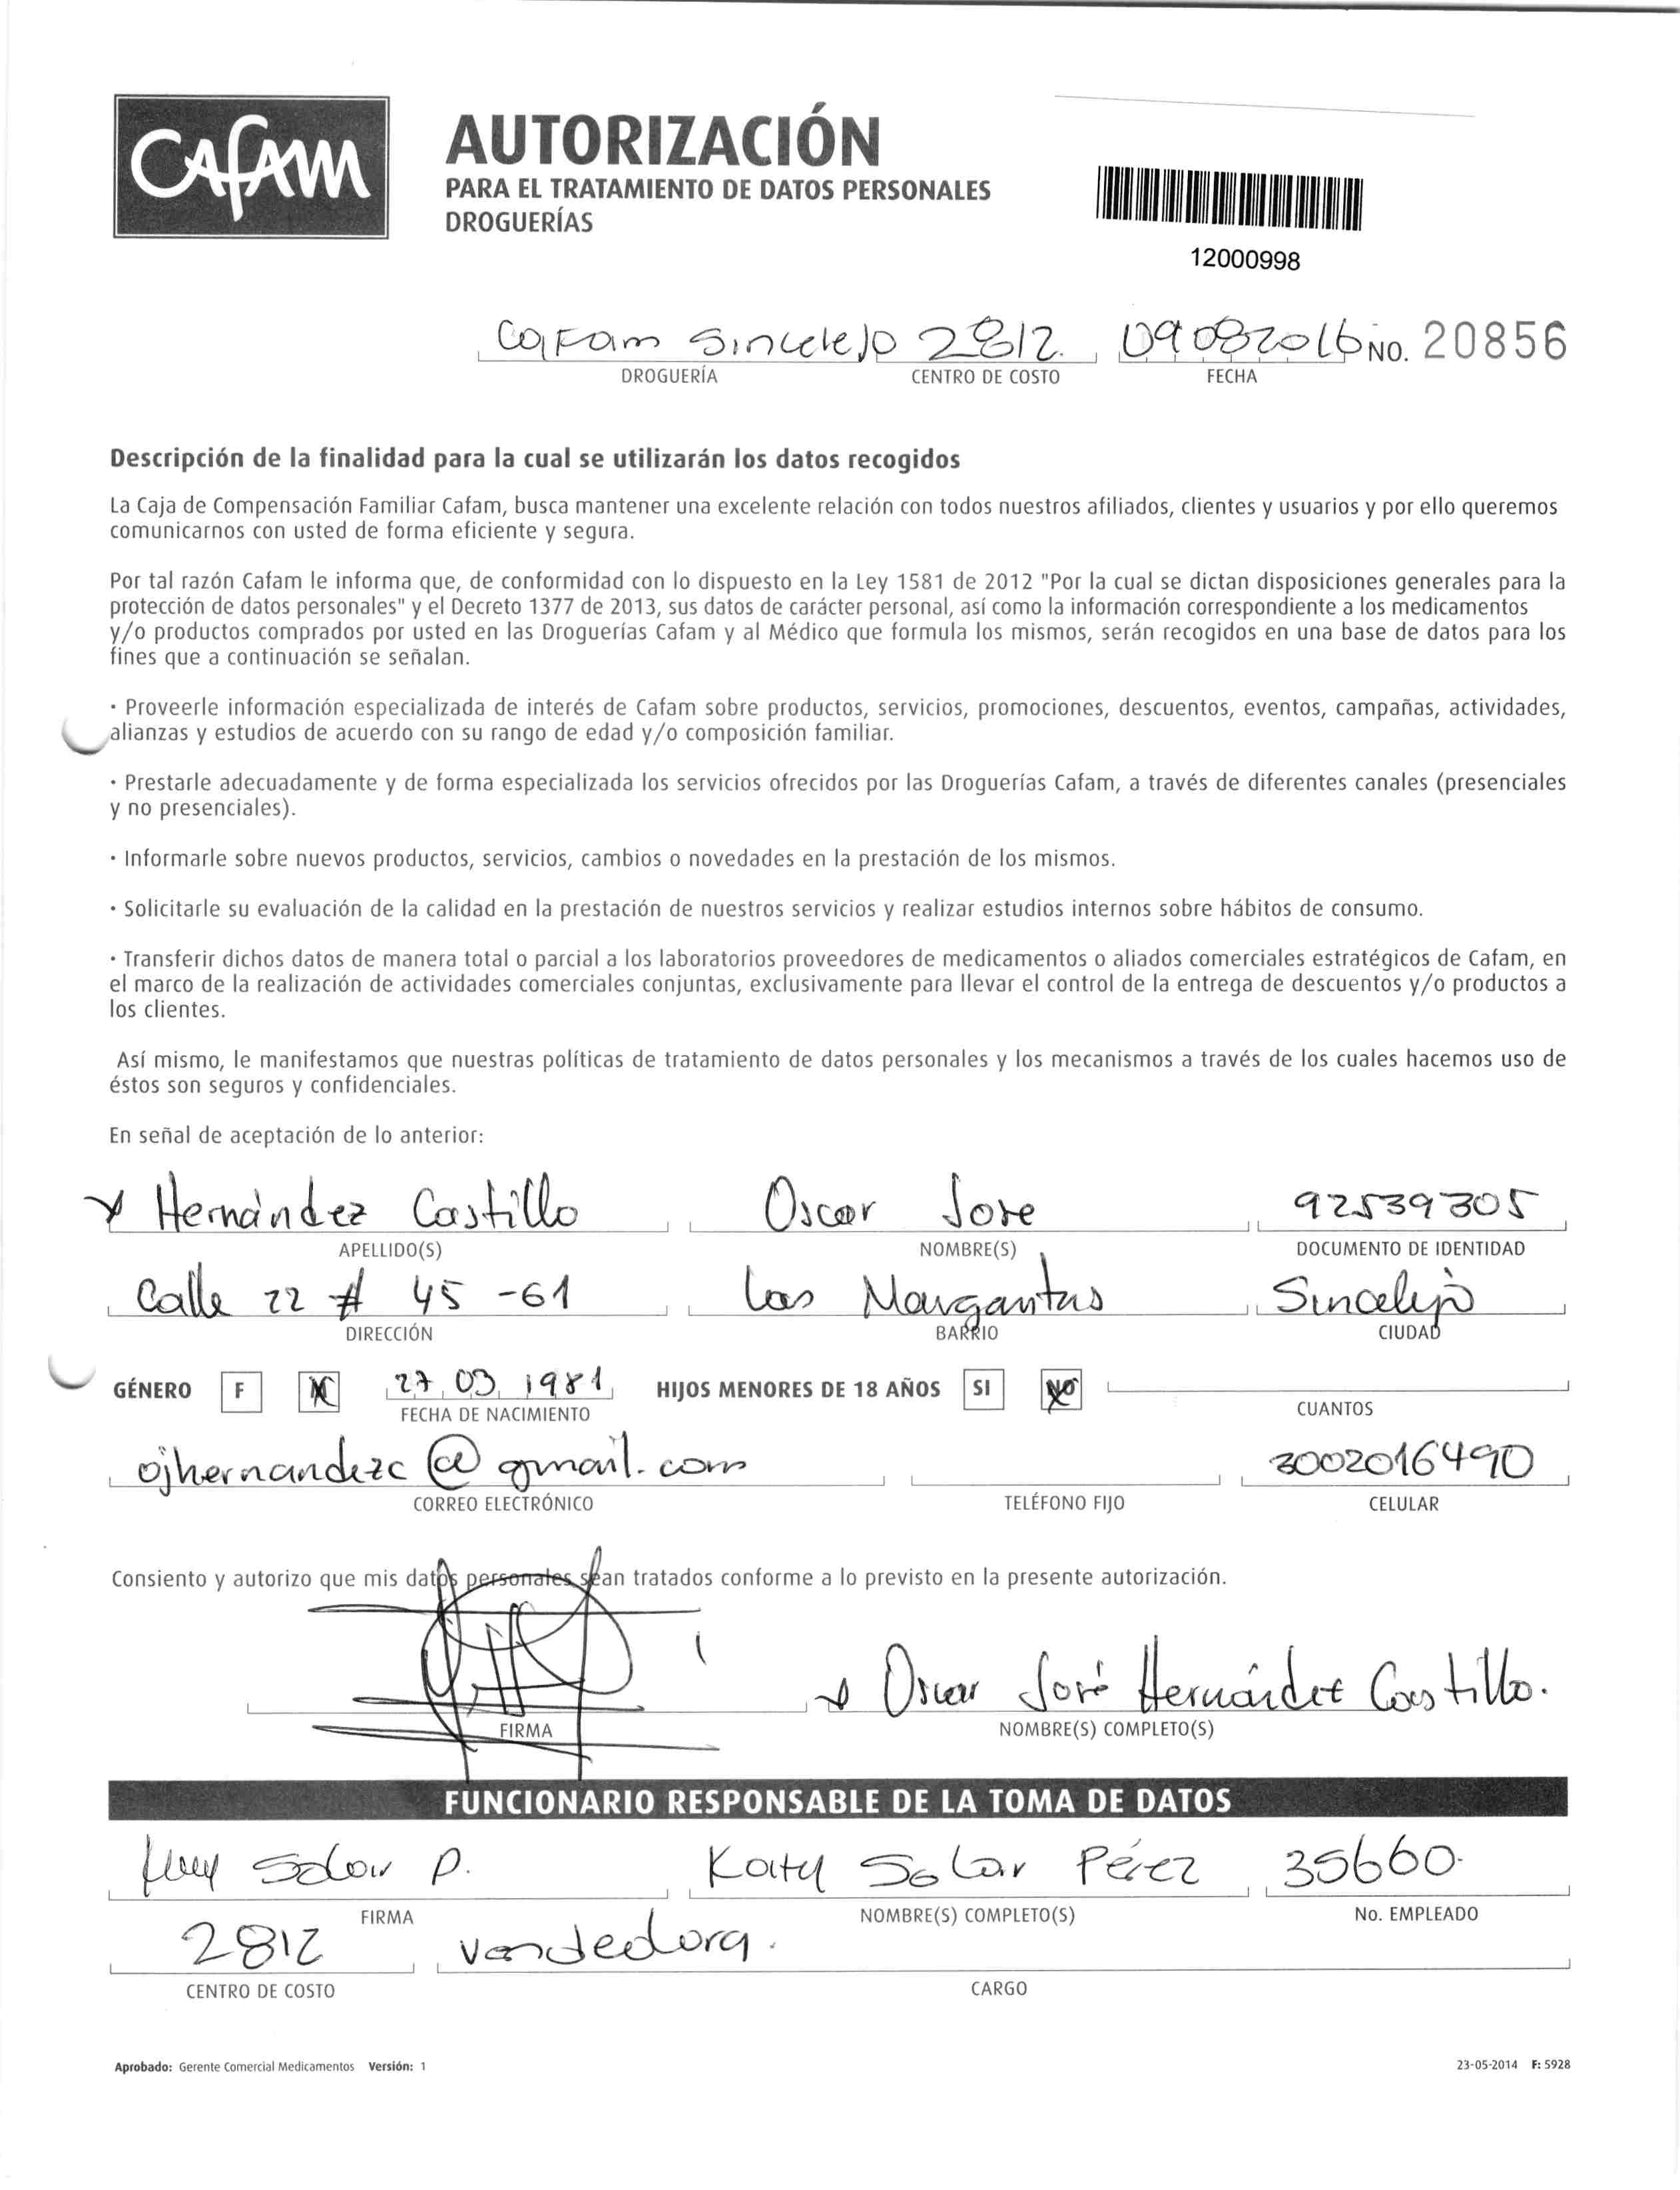 CAFAM
AUTORIZACIÓN
PARA EL TRATAMIENTO DE DATOS PERSONALES
DROGUERÍAS
12000998
Cafam Sincelejo 2812. 09082016 NO. 20856
DROGUERÍA CENTRO DE COSTO FECHA
Descripción de la finalidad para la cual se utilizarán los datos recogidos
La Caja de Compensación Familiar Cafam, busca mantener una excelente relación con todos nuestros afiliados, clientes y usuarios y por ello queremos
comunicarnos con usted de forma eficiente y segura.
Por tal razón Cafam le informa que, de conformidad con lo dispuesto en la Ley 1581 de 2012 "Por la cual se dictan disposiciones generales para la
protección de datos personales" y el Decreto 1377 de 2013, sus datos de carácter personal, así como la información correspondiente a los medicamentos
y/o productos comprados por usted en las Droguerías Cafam y al Médico que formula los mismos, serán recogidos en una base de datos para los
fines que a continuación se señalan.
· Proveerle información especializada de interés de Cafam sobre productos, servicios, promociones, descuentos, eventos, campañas, actividades,
alianzas y estudios de acuerdo con su rango de edad y/o composición familiar.
· Prestarle adecuadamente y de forma especializada los servicios ofrecidos por las Droguerías Cafam, a través de diferentes canales (presenciales
y no presenciales).
· Informarle sobre nuevos productos, servicios, cambios o novedades en la prestación de los mismos.
· Solicitarle su evaluación de la calidad en la prestación de nuestros servicios y realizar estudios internos sobre hábitos de consumo.
· Transferir dichos datos de manera total o parcial a los laboratorios proveedores de medicamentos o aliados comerciales estratégicos de Cafam, en
el marco de la realización de actividades comerciales conjuntas, exclusivamente para llevar el control de la entrega de descuentos y/o productos a
los clientes.
Así mismo, le manifestamos que nuestras políticas de tratamiento de datos personales y los mecanismos a través de los cuales hacemos uso de
éstos son seguros y confidenciales.
En señal de aceptación de lo anterior:
Hernández Castillo Oscar Jose 92539305
APELLIDO(S) NOMBRE(S) DOCUMENTO DE IDENTIDAD
Calle 22 # 45 -61 Las Margaritas Sincelejo
DIRECCIÓN BARRIO CIUDAD
GÉNERO F M 27 03 1981 HIJOS MENORES DE 18 AÑOS SI NO
FECHA DE NACIMIENTO CUANTOS
ojhernandezc@gmail.com 3002016490
CORREO ELECTRÓNICO TELÉFONO FIJO CELULAR
Consiento y autorizo que mis datos personales sean tratados conforme a lo previsto en la presente autorización.
Oscar José Hernández Castillo.
FIRMA NOMBRE(S) COMPLETO(S)
FUNCIONARIO RESPONSABLE DE LA TOMA DE DATOS
Solar P. Katy Solar Pérez 35660.
FIRMA NOMBRE(S) COMPLETO(S) No. EMPLEADO
2812 vendedora.
CENTRO DE COSTO CARGO
Aprobado: Gerente Comercial Medicamentos Versión: 1 23-05-2014 F: 5928